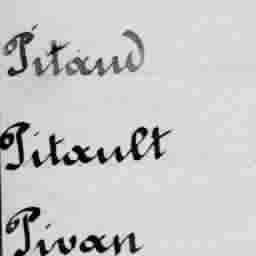 Pitaud
Pitault
Pivan